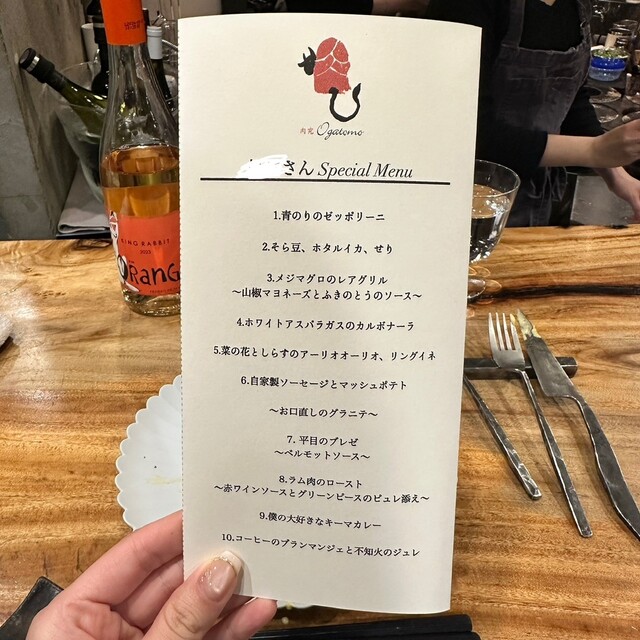 肉覚 Ogatomo
さん Special Menu
1.青のりのゼッポリーニ
2.そら豆、ホタルイカ、せり
3.メジマグロのレアグリル
～山椒マヨネーズとふきのとうのソース～
4.ホワイトアスパラガスのカルボナーラ
5.菜の花としらすのアーリオオーリオ、リングイネ
6.自家製ソーセージとマッシュポテト
～お口直しのグラニテ～
7. 平目のブレゼ
～ベルモットソース～
8.ラム肉のロースト
～赤ワインソースとグリーンピースのピュレ添え～
9.僕の大好きなキーマカレー
10.コーヒーのブランマンジェと不知火のジュレ
KING RABBIT
ORANG